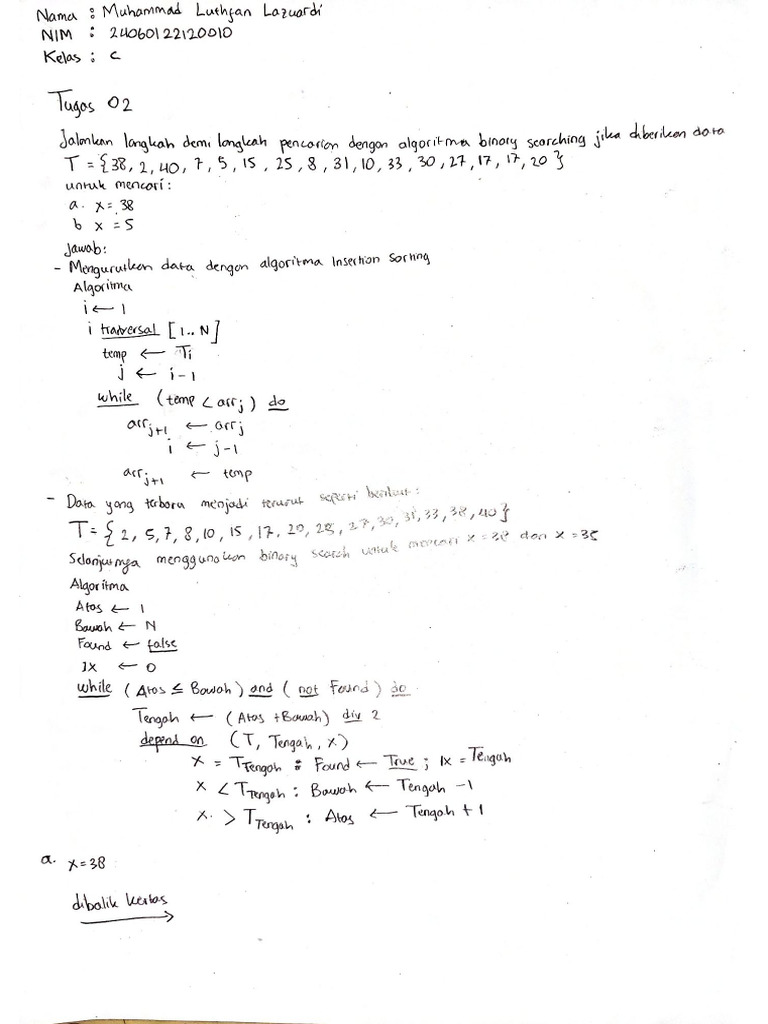 Nama : Muhammad Luthfan Lazuardi
NIM : 24060122120010
Kelas : C
Tugas 02
Jalankan langkah demi langkah pencarian dengan algoritma binary searching jika diberikan data
T = {38, 2, 40, 7, 5, 15, 25, 8, 31, 10, 33, 30, 27, 17, 17, 20}
untuk mencari:
a. x = 38
b x = 5
Jawab:
- Mengurutkan data dengan algoritma Insertion Sorting
Algoritma
i ← 1
i traversal [1..N]
temp ← Ti
j ← i-1
while (temp < arrj) do
arrj+1 ← arrj
i ← j-1
arrj+1 ← temp
- Data yang terbaru menjadi terurut seperti berikut:
T = {2, 5, 7, 8, 10, 15, 17, 20, 25, 27, 30, 31, 33, 38, 40}
Selanjutnya menggunakan binary search untuk mencari x = 38 dan x = 35
Algoritma
Atas ← 1
Bawah ← N
Found ← false
IX ← 0
while (Atas ≤ Bawah) and (not Found) do
Tengah ← (Atas + Bawah) div 2
depend on (T, Tengah, x)
x = TTengah : Found ← True ; IX = Tengah
x < TTengah : Bawah ← Tengah -1
x > TTengah : Atas ← Tengah + 1
a. x=38
dibalik kertas →